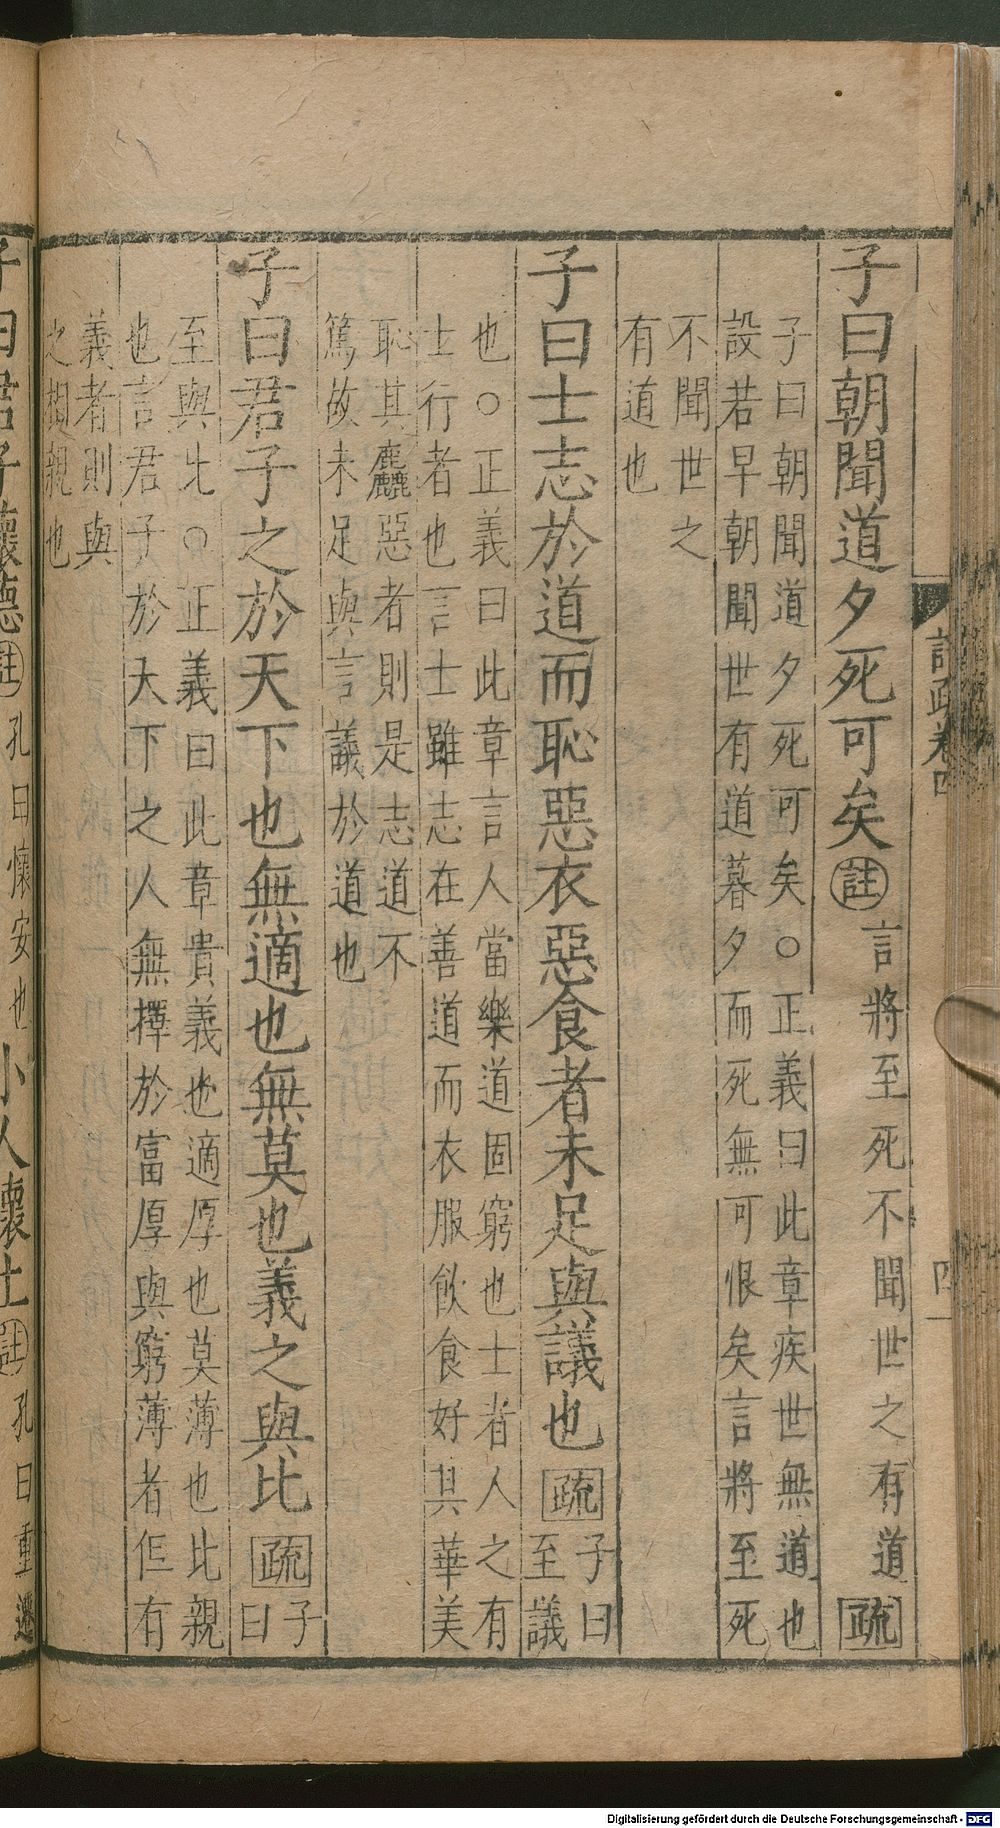 子曰朝聞道夕死可矣註言將至死不聞世之有道疏
子曰朝聞道夕死可矣○正義曰此章疾世無道也
設若早朝聞世有道暮夕而死無可恨矣言將至死
不聞世之
有道也
子曰士志於道而恥惡衣惡食者未足與議也疏子曰
至議
也○正義曰此章言人當樂道固窮也士者人之有
士行者也言士雖志在善道而衣服飲食好其華美
恥其麤惡者則是志道不
篤故未足與言議於道也
子曰君子之於天下也無適也無莫也義之與比疏子
曰
至與比○正義曰此章貴義也適厚也莫薄也比親
也言君子於天下之人無擇於富厚與窮薄者但有
義者則與
之相親也
子曰君子懷德註孔曰懷安也小人懷土註孔曰重遷
註疏卷四
四
Digitalisierung gefördert durch die Deutsche Forschungsgemeinschaft - DFG